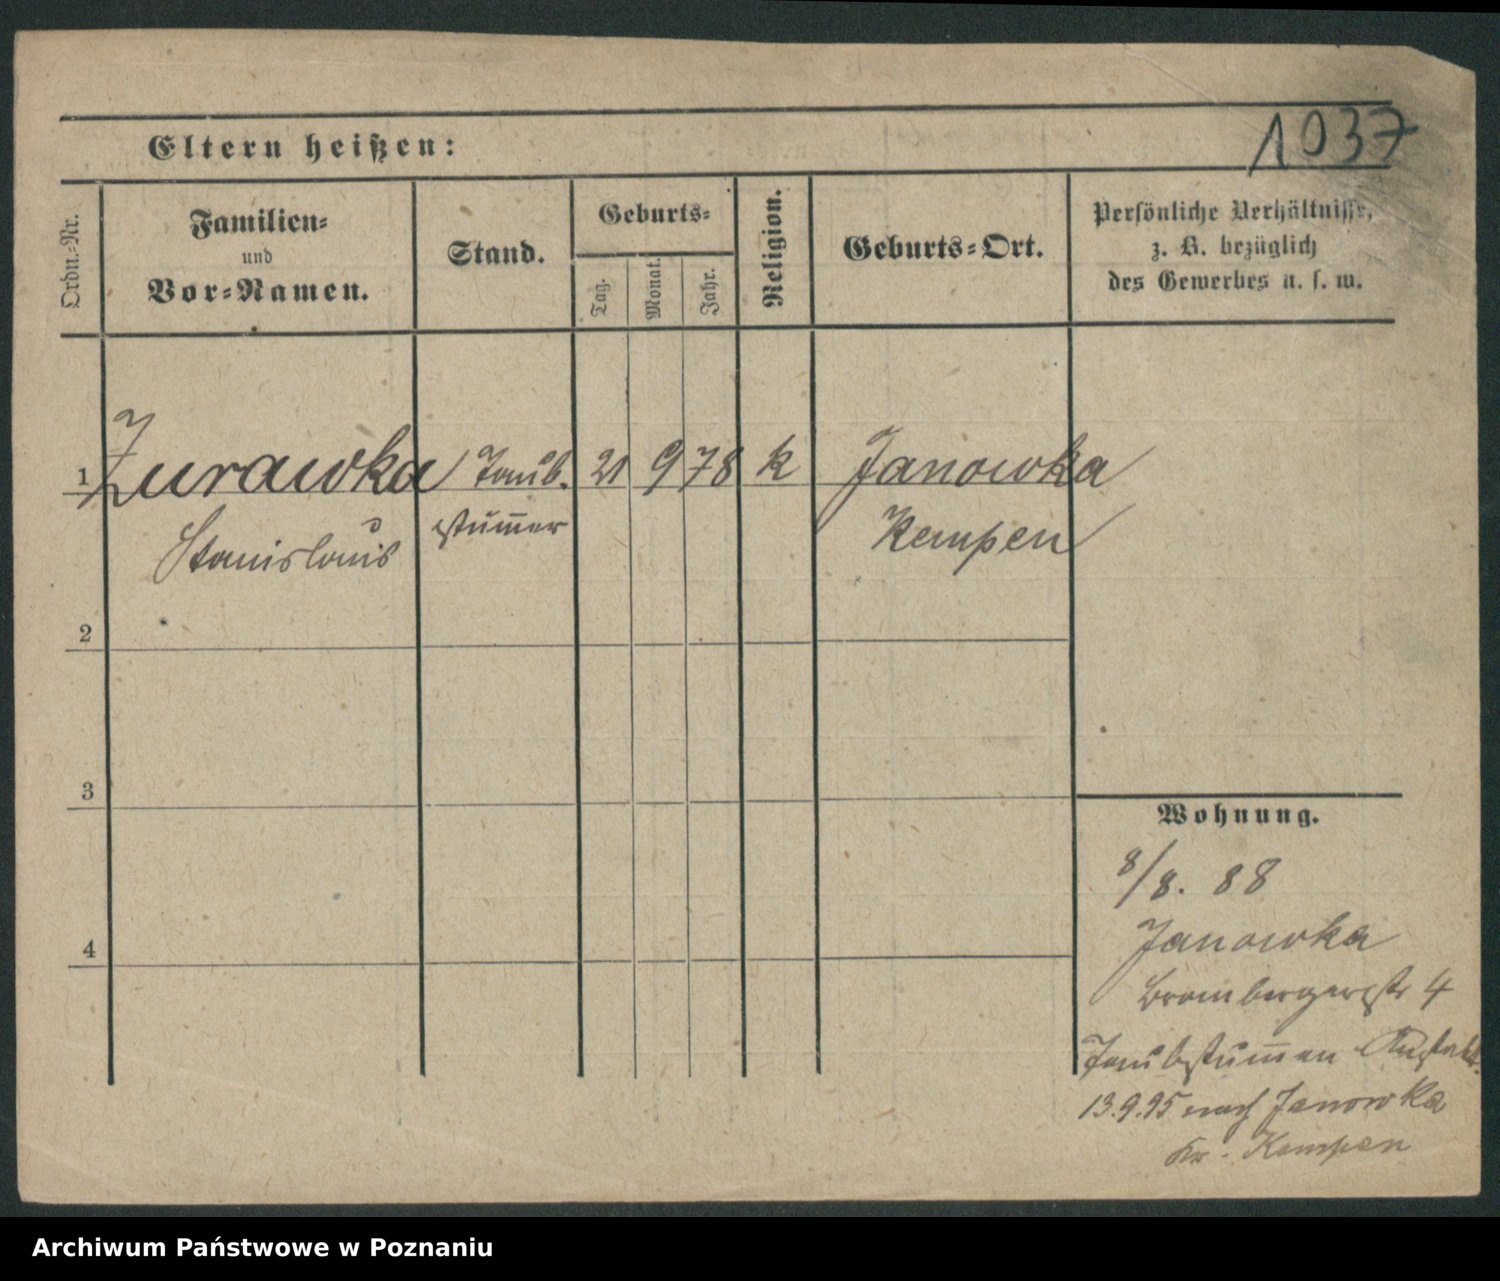 1037
Eltern heißen:
Ordn.-Nr.
Familien-
und
Vor-Namen.
Stand.
Geburts-
Tag.
Monat.
Jahr.
Religion.
Geburts-Ort.
Persönliche Verhältnisse,
z. B. bezüglich
des Gewerbes u. s. w.
1 Zurawka Taub. 21 9 78 k Janowka
Stanislaus stum̅er Kempen
2
3
4
Wohnung.
8/8. 88
Janowka
Brombergerstr 4
Taubstum̅en Anstalt.
13.9.95 nach Janowka
Kr. Kempen
Archiwum Państwowe w Poznaniu